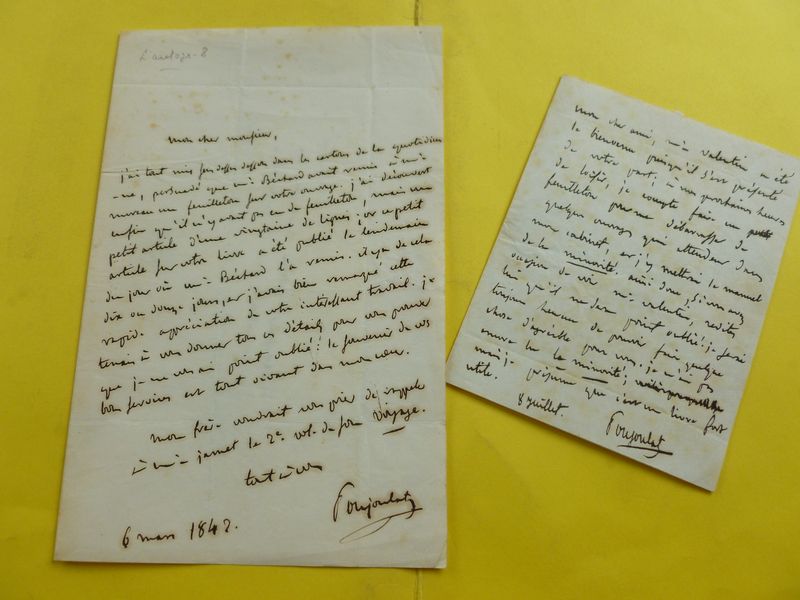 mon cher monsieur,
j'ai tout mis sens dessus dessous dans les cartons de la quotidien
-ne, persuadé que mr Béchard avait remis à mr
un feuilleton sur votre ouvrage. j'ai découvert
enfin qu'il n'y avait pas eu de feuilleton, mais un
petit article d'une vingtaine de lignes; or ce petit
article sur votre livre a été publié le lendemain
du jour où mr Béchard l'a remis. il y a de cela
dix ou douze jours, et j'avais bien remarqué cette
rapide appréciation de votre intéressant travail. je
tenais à vous donner tous ces détails pour vous prouver
que je ne vous ai point oublié: le souvenir de vos
bons services est tout vivant dans mon cœur.
mon frère voudrait vous prier de rappeler
à mr jannet le 2e vol. de son voyage.
tout à vous
Poujoulat
6 mars 1842.
mon cher ami, mr valentin a été
le bienvenu puisqu'il s'est présenté
de votre part; à mes prochaines heures
de loisir, je compte faire un
feuilleton pour me débarrasser de
quelques ouvrages qui attendent dans
mon cabinet, et j'y mettrai le manuel
de la minorité. ainsi donc, si vous avez
occasion de voir mr valentin, redites
lui qu'il ne sera point oublié. je serai
toujours heureux de pouvoir faire quelque
chose d'agréable pour vous. je n'ai pas
encore lu la minorité;
mais je présume que c'est un livre fort
utile.
8 juillet.
Poujoulat